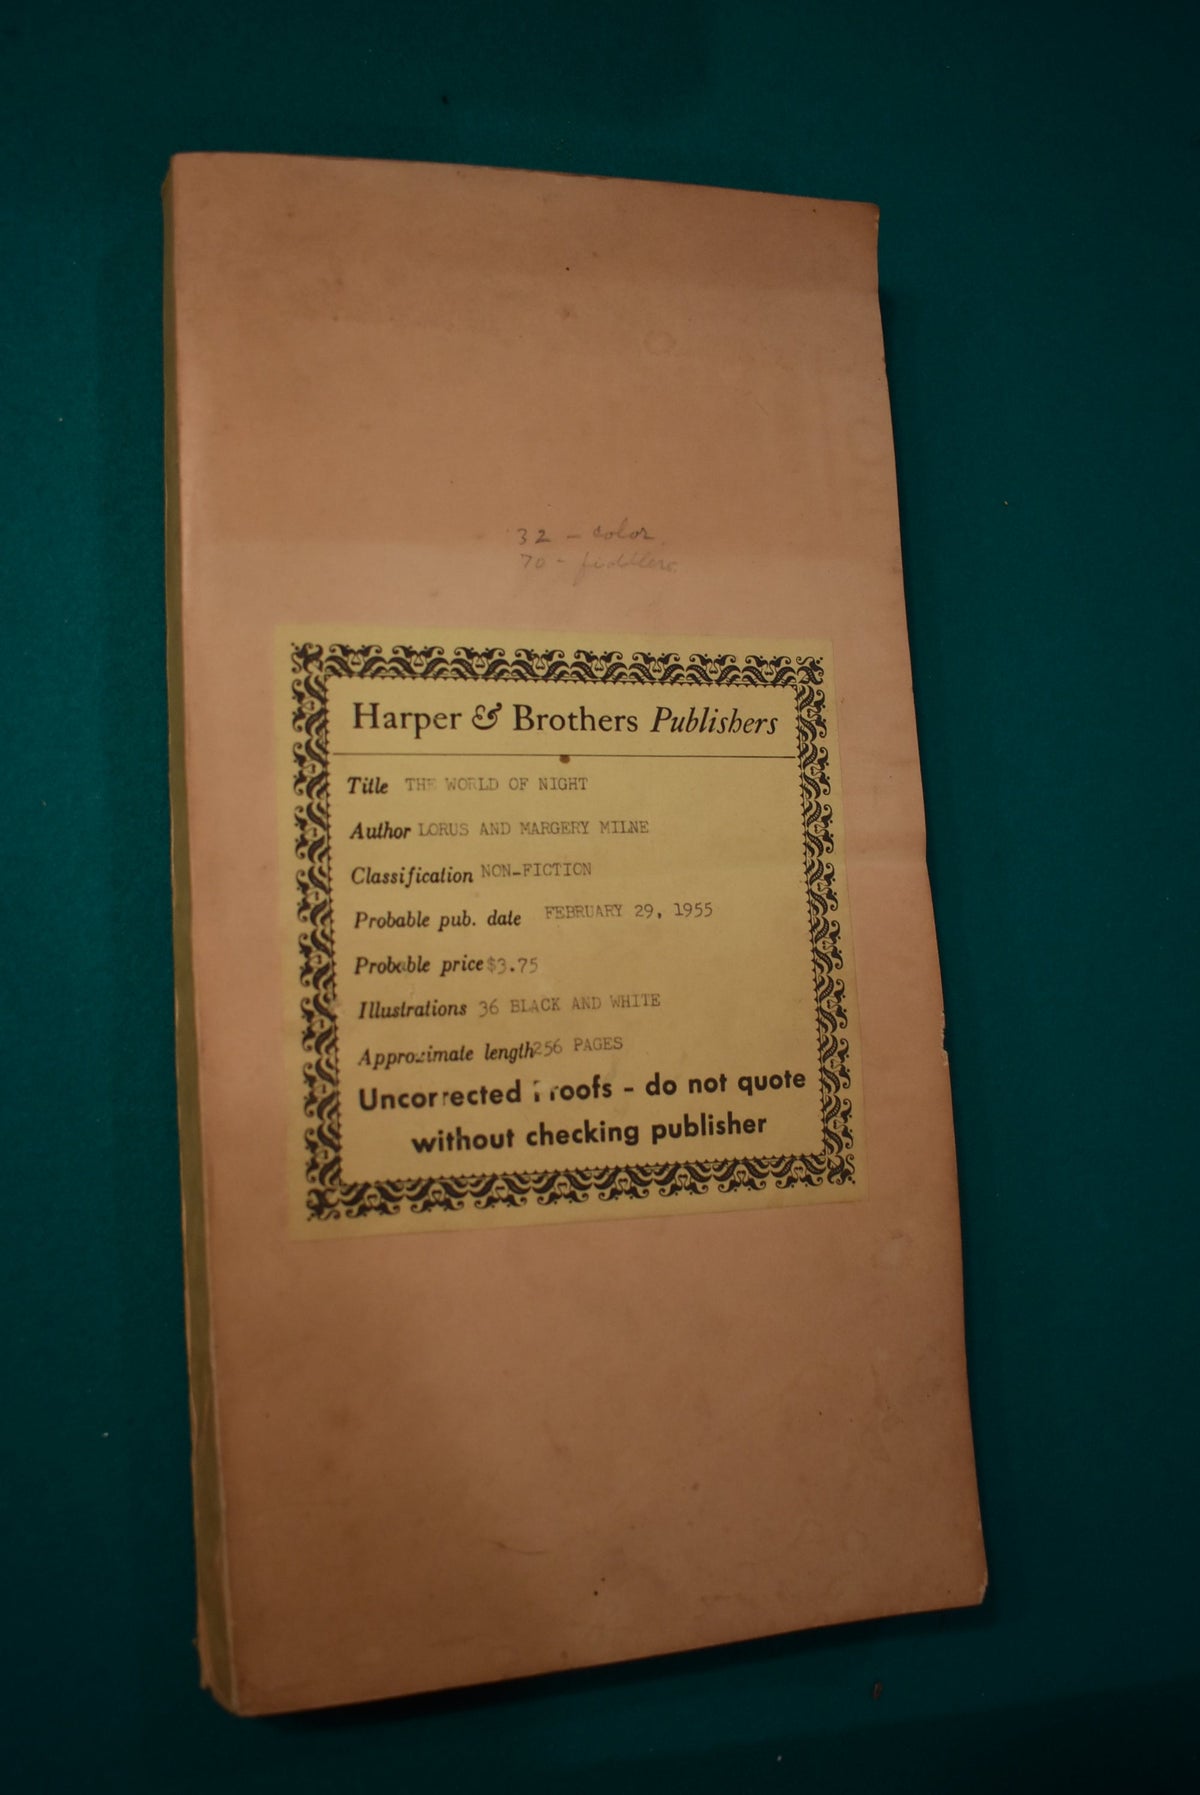 32 - color
70 - fiddlers
Harper & Brothers Publishers
Title THE WORLD OF NIGHT
Author LORUS AND MARGERY MILNE
Classification NON-FICTION
Probable pub. date FEBRUARY 29, 1955
Probable price $3.75
Illustrations 36 BLACK AND WHITE
Approximate length 256 PAGES
Uncorrected Proofs - do not quote
without checking publisher